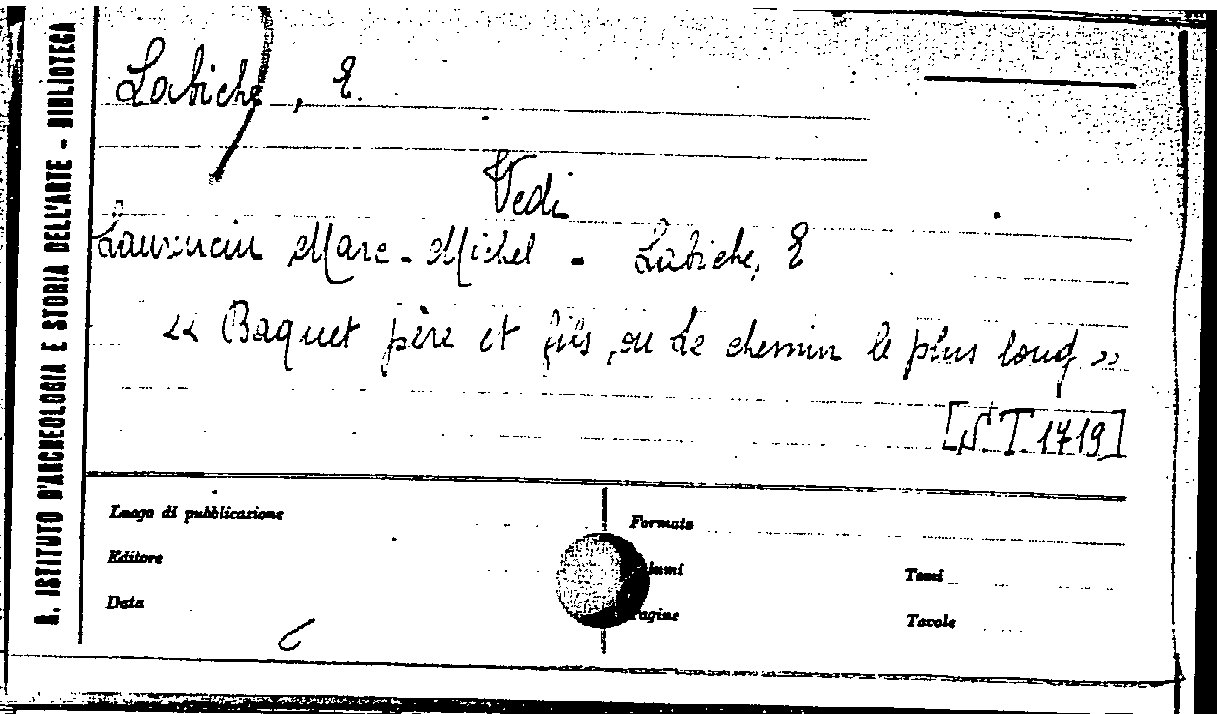 R. ISTITUTO D'ARCHEOLOGIA E STORIA DELL'ARTE - BIBLIOTECA
Labiche, E.
Vedi
Laurencin Marc-Michel - Labiche, E
« Baquet père et fils, ou Le chemin le plus long »
[S.T. 1719]
Luogo di pubblicazione
Formato
Editore
Volumi
Tomi
Data
Pagine
Tavole